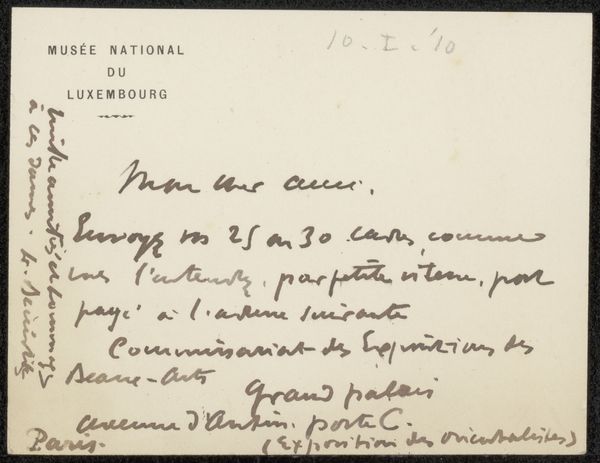 MUSÉE NATIONAL
DU
LUXEMBOURG
10.I.'10
Mon cher ami,
Envoyez vos 25 ou 30 cadres, comme
vous l'entendez, par petite vitesse, port
payé à l'adresse suivante
Commissariat des Expositions des
Beaux-Arts
Grand palais
avenue d'Antin. porte C.
Paris. (Exposition des orientalistes)
amitiés et hommages
à ces dames. L. Bénédite